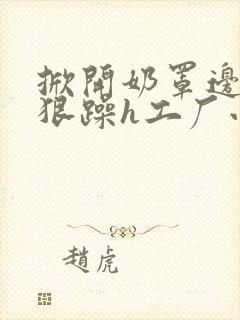 掀開奶罩邊
狠躁h工厂
趙虎